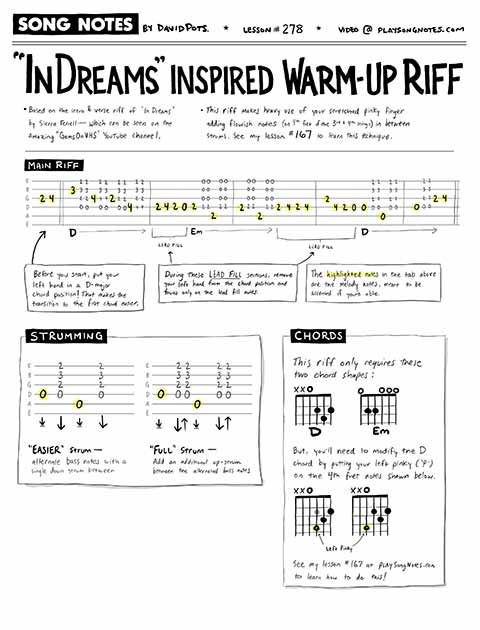 SONG NOTES BY DAVID POTS. * LESSON # 278 * VIDEO @ PLAYSONGNOTES.COM
"IN DREAMS" INSPIRED WARM-UP RIFF
• Based on the intro & verse riff of "In Dreams"
by Sierra Ferrell — which can be seen on the
amazing "GemsOnVHS" YouTube channel.
• This riff makes heavy use of your stretched pinky finger
adding flourish notes (on 5th fret of the 3rd & 4th strings) in between
strums. See my lesson #167 to learn this technique.
MAIN RIFF
D Em D
LEAD FILL LEAD FILL
Before you start, put your
left hand in a D-major
chord position! That makes the
transition to the first chord easier.
During these LEAD FILL sections, remove
your left hand from the chord position and
focus only on the lead fill notes.
The highlighted notes in the tab above
are the melody notes, meant to be
accented if you're able.
STRUMMING
"EASIER" strum —
alternate bass notes with a
single down strum between
"FULL" strum —
Add an additional up-strum
between the alternated bass notes
CHORDS
This riff only requires these
two chord shapes:
XXO O OOO
D Em
But, you'll need to modify the D
chord by putting your left pinky ("P")
on the 4th fret notes shown below.
XXO XXO
Left Pinky
See my lesson #167 at PlaySongNotes.com
to learn how to do this!